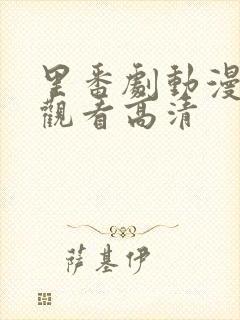 里番劇動漫
觀看高清
薩基伊